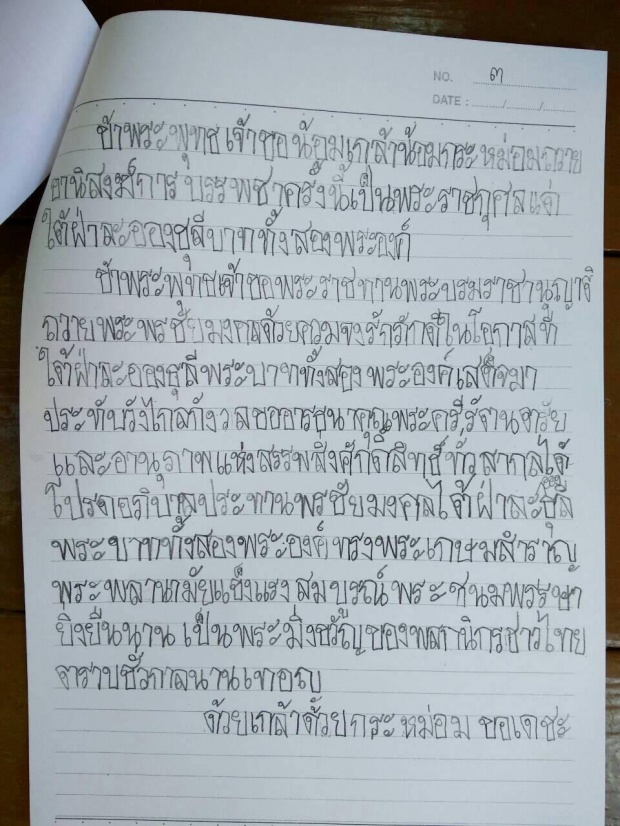 NO. ๓
DATE : ....../....../......
ข้าพระพุทธเจ้าขอน้อมเกล้าน้อมกระหม่อมถวาย
อานิสงฆ์การบรรพชาครั้งนี้เป็นพระราชกุศลแด่
ใต้ฝ่าละอองธุลีบาททั้งสองพระองค์
ข้าพระพุทธเจ้าขอพระราชทานพระบรมราชานุญาติ
ถวายพระพรชัยมงคลด้วยความจงรักภักดีในโอกาสที่
ใต้ฝ่าละอองธุลีพระบาททั้งสองพระองค์เสด็จมา
ประทับวังไกลกังวล ขออาราธนาคุณพระศรีรัตนตรัย
และอานุภาพแห่งสรรพสิ่งศักดิ์สิทธิ์ทั่วสากลได้
โปรดอภิบาลประทานพรชัยมงคลใต้ฝ่าละธุลี
พระบาททั้งสองพระองค์ ทรงพระเกษมสำราญ
พระพลานามัยแข็งแรง สมบูรณ์ พระชนมพรรษา
ยิ่งยืนนาน เป็นพระมิ่งขวัญของพสกนิกรชาวไทย
ตราบชั่วกาลนานเทอญ
ด้วยเกล้าด้วยกระหม่อม ขอเดชะ